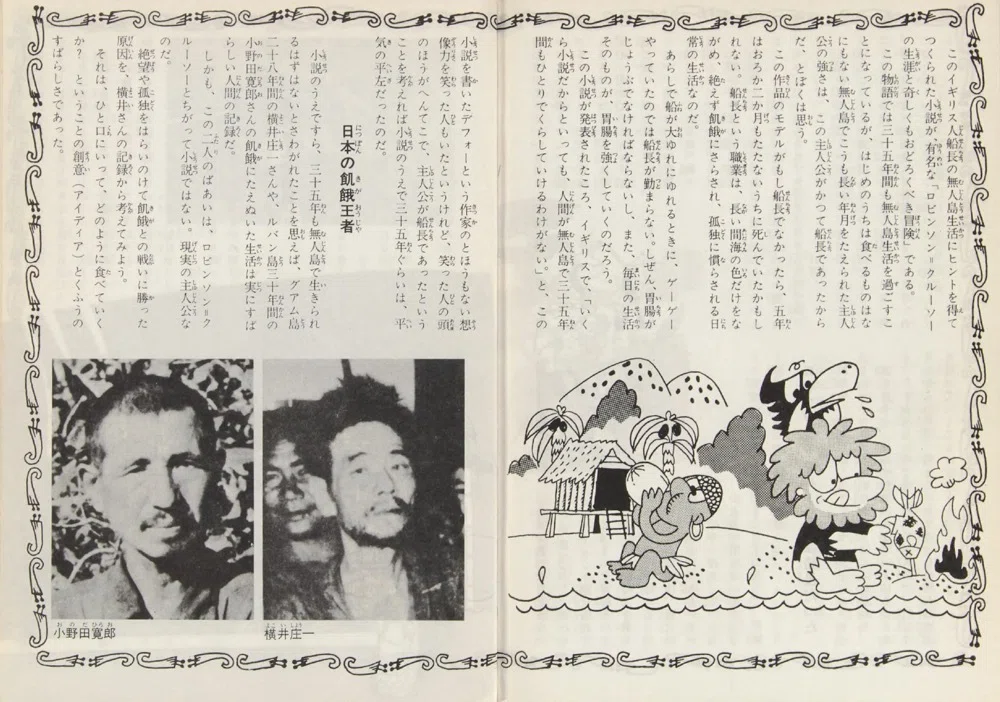 このイギリス人船長の無人島生活にヒントを得て
つくられた小説が、有名な「ロビンソン＝クルーソー
の生涯と奇しくもおどろくべき冒険」である。
この物語では三十五年間も無人島生活を過ごすこ
とになっているが、はじめのうちは食べるものはな
にもない無人島でこうも長い年月をたえられた主人
公の強さは、この主人公がかつて船長であったから
だ、とぼくは思う。
この作品のモデルがもし船長でなかったら、五年
はおろか二か月もたたないうちに死んでいたかもし
れない。船長という職業は、長い間海の色だけをな
がめ、絶えず飢餓にさらされ、孤独に慣らされる日
常の生活なのだ。
あらしで船が大ゆれにゆれるときに、ゲーゲー
やっていたのでは船長が勤まらない。しぜん、胃腸が
じょうぶでなければならないし、また、毎日の生活
そのものが、胃腸を強くしていくのだろう。
この小説が発表されたころ、イギリスで、「いく
ら小説だからといっても、人間が無人島で三十五年
間もひとりでくらしていけるわけがない。」と、この
小説を書いたデフォーという作家のとほうもない想
像力を笑った人もいたというけれど、笑った人の頭
のほうがへんてこで、主人公が船長であったという
ことを考えれば小説のうえで三十五年ぐらいは、平
気の平左だったのだ。
日本の飢餓王者
小説のうえですら、三十五年も無人島で生きられ
るはずはないとさわがれたことを思えば、グアム島
二十八年間の横井庄一さんや、ルバン島三十年間の
小野田寛郎さんの飢餓にたえぬいた生活は実にすば
らしい人間の記録だ。
しかも、この二人のばあいは、ロビンソン＝ク
ルーソーとちがって小説ではない。現実の主人公な
のだ。
絶望や孤独をはらいのけて飢餓との戦いに勝った
原因を、横井さんの記録から考えてみよう。
それは、ひと口にいって、どのように食べていく
か？　ということの創意（アイディア）とくふうの
すばらしさであった。
横井庄一
小野田寛郎